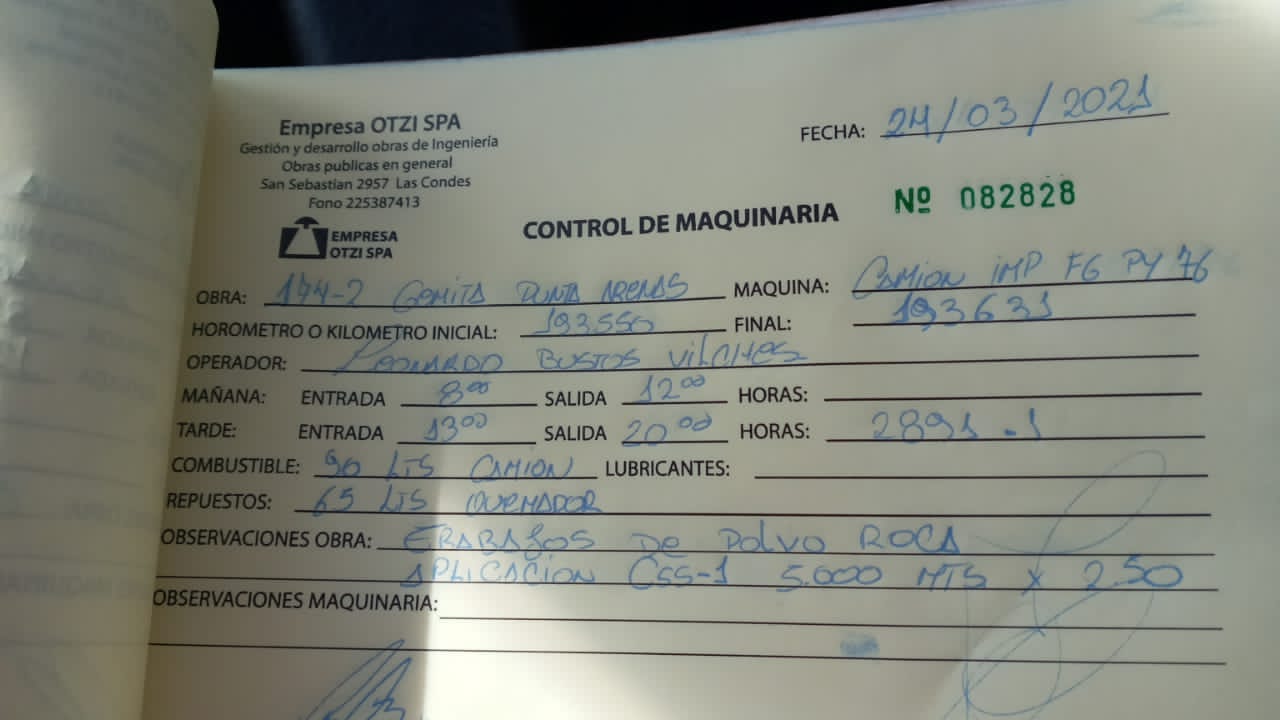 Empresa OTZI SPA
Gestión y desarrollo obras de Ingeniería
Obras publicas en general
San Sebastian 2957 Las Condes
Fono 225387413
EMPRESA
OTZI SPA
FECHA: 24/03/2021
Nº 082828
CONTROL DE MAQUINARIA
OBRA: 174-2 Gomita PUNTA ARENAS MAQUINA: CAMION IMP FG PY 76
HOROMETRO O KILOMETRO INICIAL: 193550 FINAL: 193631
OPERADOR: Leonardo BUSTOS VILCHES
MAÑANA: ENTRADA 8:00 SALIDA 12:00 HORAS:
TARDE: ENTRADA 13:00 SALIDA 20:00 HORAS: 2891.1
COMBUSTIBLE: 90 LTS CAMION LUBRICANTES:
REPUESTOS: 65 LTS QUEMADOR
OBSERVACIONES OBRA: TRABAJOS De POLVO ROCA
APLICACION CSS-1 5.000 MTS X 2.50
OBSERVACIONES MAQUINARIA: